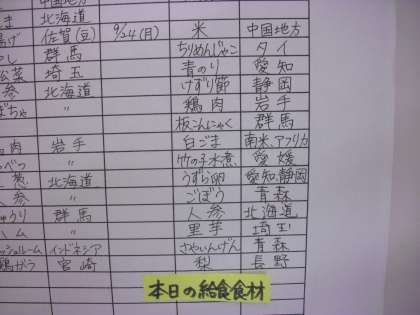 ま 北海道 中国地方
揚げ 佐賀(豆) 9/24(月) 米 中国地方
やし 群馬 ちりめんじゃこ タイ
松菜 埼玉 青のり 愛知
参 北海道 けずり節 静岡
ぼちゃ 〃 鶏肉 岩手
板こんにゃく 群馬
肉 岩手 白ごま 南米,アフリカ
べつ 〃 竹の子水煮 愛媛
葱 北海道 うずら卵 愛知,静岡
人参 〃 ごぼう 青森
ゅうり 群馬 人参 北海道
ハム 〃 里芋 埼玉
ッシュルーム インドネシア さやいんげん 青森
鶏がら 宮崎 梨 長野
本日の給食食材